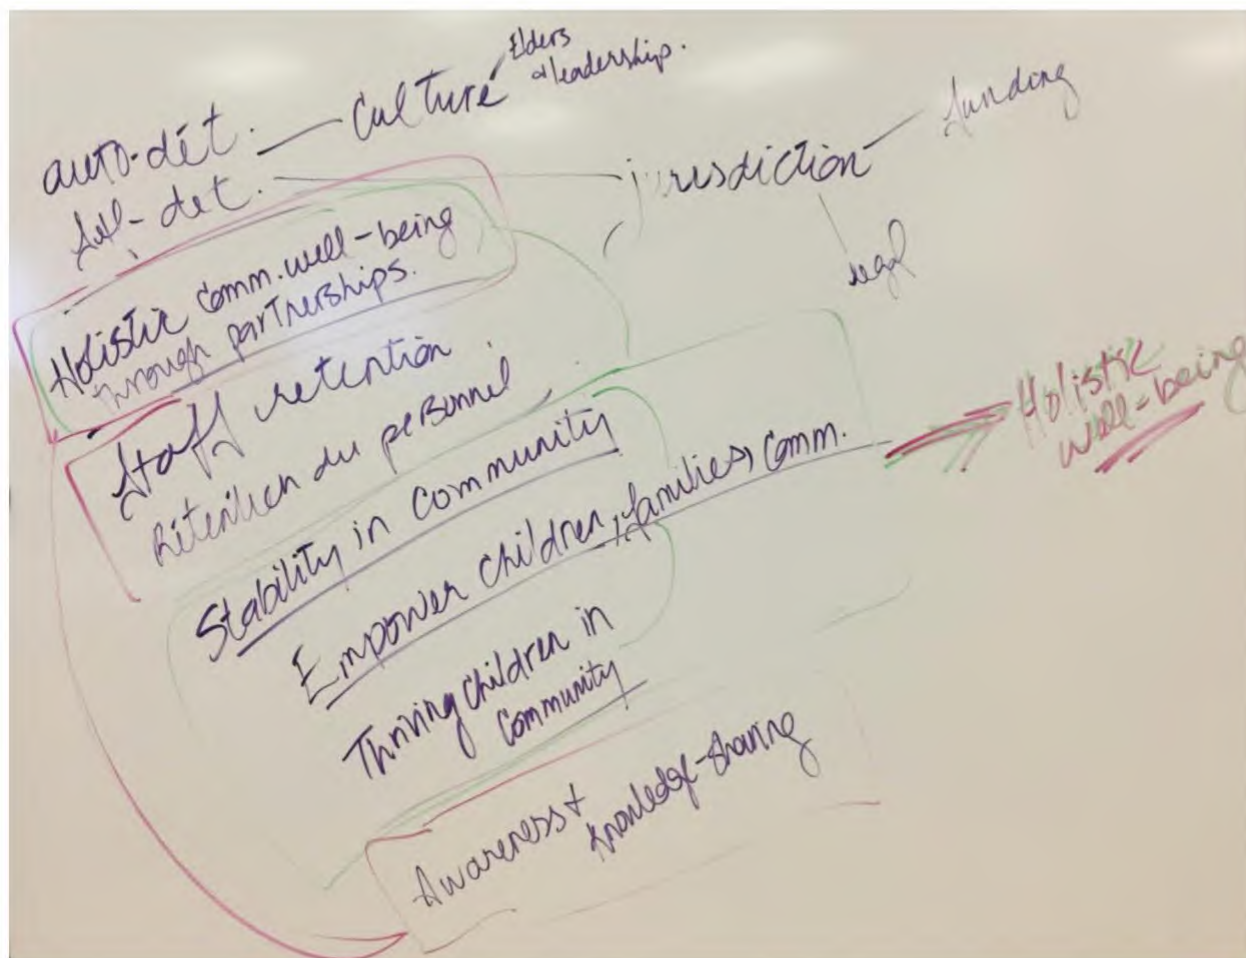 Elders
& leadership.
Culture
auto-dét.
Self-det.
jurisdiction
funding
legal
Holistic comm. well-being
through partnerships.
Staff retention
Rétention du personnel
Stability in community
Empower children, families, comm.
Holistic
well-being
Thriving children in
community
Awareness +
knowledge-sharing